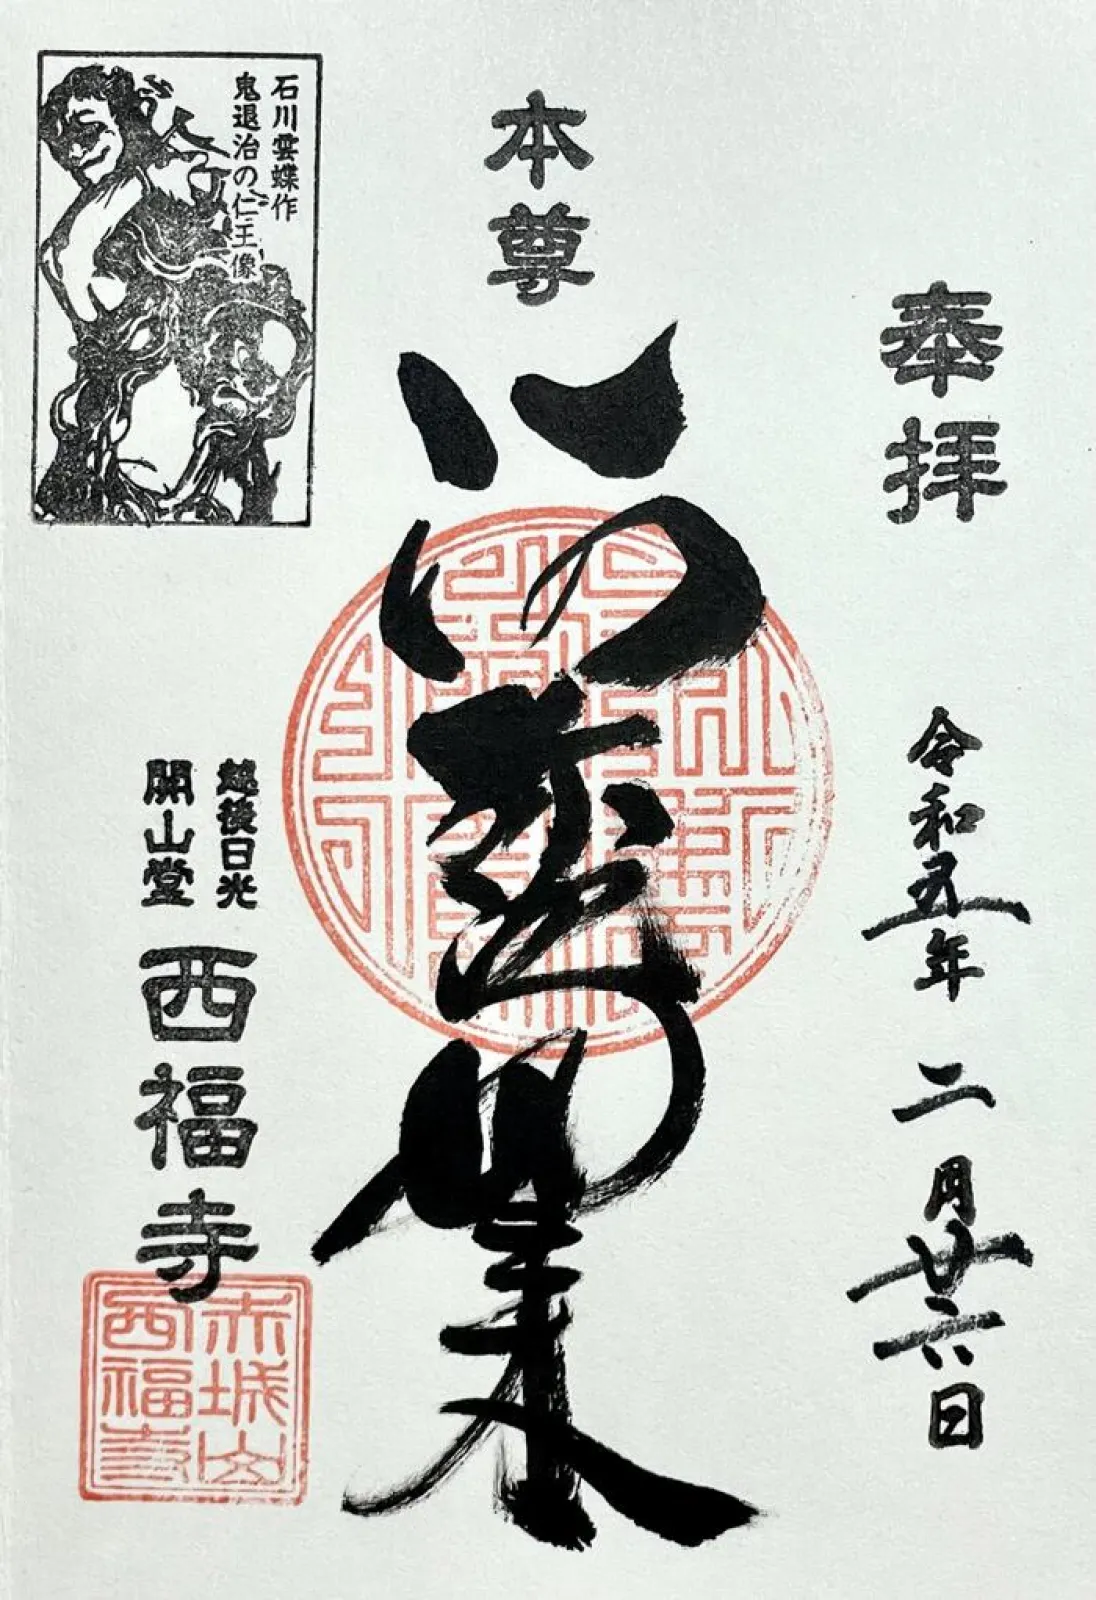 奉拝
令和五年 二月廿六日
本尊
如来
石川雲蝶作
鬼退治の仁王像
越後日光
開山堂
西福寺
赤城山
西福寺